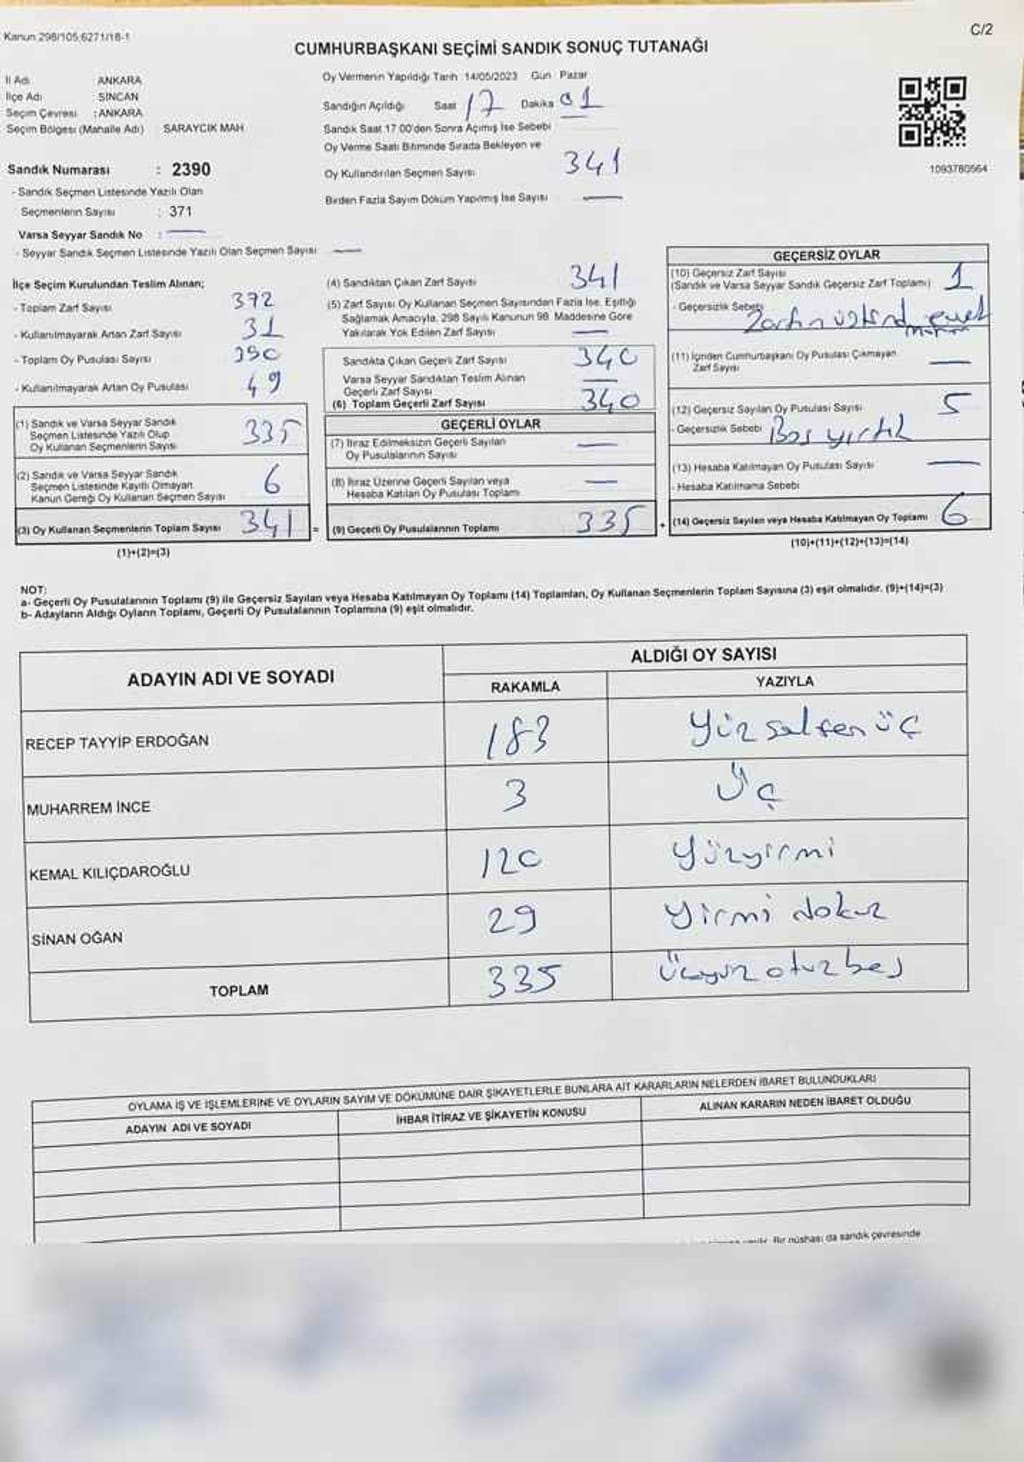 Kanun 298/105,6271/18-1
C/2
CUMHURBAŞKANI SEÇİMİ SANDIK SONUÇ TUTANAĞI
İl Adı ANKARA
İlçe Adı SİNCAN
Seçim Çevresi : ANKARA
Seçim Bölgesi (Mahalle Adı) SARAYCIK MAH
Sandık Numarası : 2390
- Sandık Seçmen Listesinde Yazılı Olan
Seçmenlerin Sayısı : 371
Varsa Seyyar Sandık No : —
- Seyyar Sandık Seçmen Listesinde Yazılı Olan Seçmen Sayısı —
Oy Vermenin Yapıldığı Tarih 14/05/2023 Gün Pazar
Sandığın Açıldığı Saat 17 Dakika 01
Sandık Saat 17 00'den Sonra Açılmış İse Sebebi
Oy Verme Saati Bitiminde Sırada Bekleyen ve
Oy Kullandırılan Seçmen Sayısı 341
Birden Fazla Sayım Döküm Yapılmış İse Sayısı —
1093780564
İlçe Seçim Kurulundan Teslim Alınan;
- Toplam Zarf Sayısı 372
- Kullanılmayarak Artan Zarf Sayısı 31
- Toplam Oy Pusulası Sayısı 390
- Kullanılmayarak Artan Oy Pusulası 49
(1) Sandık ve Varsa Seyyar Sandık
Seçmen Listesinde Yazılı Olup
Oy Kullanan Seçmenlerin Sayısı 335
(2) Sandık ve Varsa Seyyar Sandık
Seçmen Listesinde Kayıtlı Olmayan
Kanun Gereği Oy Kullanan Seçmen Sayısı 6
(3) Oy Kullanan Seçmenlerin Toplam Sayısı 341 =
(1)+(2)=(3)
(4) Sandıktan Çıkan Zarf Sayısı 341
(5) Zarf Sayısı Oy Kullanan Seçmen Sayısından Fazla İse, Eşitliği
Sağlamak Amacıyla, 298 Sayılı Kanunun 98. Maddesine Göre
Yakılarak Yok Edilen Zarf Sayısı —
Sandıkta Çıkan Geçerli Zarf Sayısı 340
Varsa Seyyar Sandıktan Teslim Alınan
Geçerli Zarf Sayısı —
(6) Toplam Geçerli Zarf Sayısı 340
GEÇERLİ OYLAR
(7) İtiraz Edilmeksizin Geçerli Sayılan
Oy Pusulalarının Sayısı —
(8) İtiraz Üzerine Geçerli Sayılan veya
Hesaba Katılan Oy Pusulası Toplamı —
(9) Geçerli Oy Pusulalarının Toplamı 335 +
GEÇERSİZ OYLAR
(10) Geçersiz Zarf Sayısı
(Sandık ve Varsa Seyyar Sandık Geçersiz Zarf Toplamı) 1
- Geçersizlik Sebebi Zarfın üstünde evet
mührü
(11) İçinden Cumhurbaşkanı Oy Pusulası Çıkmayan
Zarf Sayısı —
(12) Geçersiz Sayılan Oy Pusulası Sayısı 5
- Geçersizlik Sebebi Boş yırtık
(13) Hesaba Katılmayan Oy Pusulası Sayısı —
- Hesaba Katılmama Sebebi
(14) Geçersiz Sayılan veya Hesaba Katılmayan Oy Toplamı 6
(10)+(11)+(12)+(13)=(14)
NOT:
a- Geçerli Oy Pusulalarının Toplamı (9) ile Geçersiz Sayılan veya Hesaba Katılmayan Oy Toplamı (14) Toplamları, Oy Kullanan Seçmenlerin Toplam Sayısına (3) eşit olmalıdır. (9)+(14)=(3)
b- Adayların Aldığı Oyların Toplamı, Geçerli Oy Pusulalarının Toplamına (9) eşit olmalıdır.
ADAYIN ADI VE SOYADI
ALDIĞI OY SAYISI
RAKAMLA YAZIYLA
RECEP TAYYİP ERDOĞAN 183 Yüzseksenüç
MUHARREM İNCE 3 Üç
KEMAL KILIÇDAROĞLU 120 Yüzyirmi
SİNAN OĞAN 29 Yirmi dokuz
TOPLAM 335 Üçyüzotuzbeş
OYLAMA İŞ VE İŞLEMLERİNE VE OYLARIN SAYIM VE DÖKÜMÜNE DAİR ŞİKAYETLERLE BUNLARA AİT KARARLARIN NELERDEN İBARET BULUNDUKLARI
ADAYIN ADI VE SOYADI İHBAR İTİRAZ VE ŞİKAYETİN KONUSU ALINAN KARARIN NEDEN İBARET OLDUĞU
Bir nüshası da sandık çevresinde